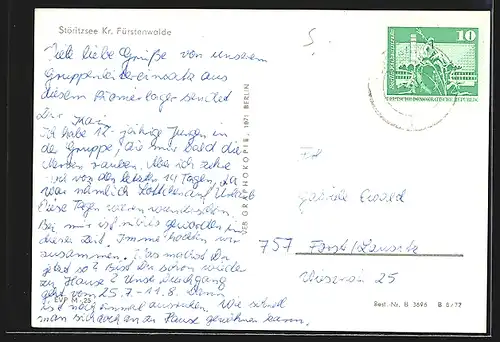 Störitzsee Kr. Fürstenwalde
Viele liebe Grüße von unserem
Gruppenleitereinsatz aus
diesem Pionierlager sendet
Dir
Ich habe 12-jährige Jungen in
der Gruppe, die mir bald die
Nerven rauben. Aber ich
von den letzten 14 Tagen. Da
war nämlich auf Urlaub
Diese Tage waren wunderschön
Bei mir ist nichts geworden in
dieser Zeit. Immer hockten wir
zusammen. Was machst Du
jetzt so? Bist Du schon wieder
zu Hause? Unser Durchgang
geht vom 25.7.-11.8. Dann
ist noch einmal ausruhen. Wie schnell
man sich doch an zu Hause gewöhnen kann.
EVP M -,25
VEB GRAPHOKOPIE, 1071 BERLIN
10
DEUTSCHE DEMOKRATISCHE REPUBLIK
Gabriele
757 Forst/Lausitz
25
Best.-Nr. B 3696 B 6/77